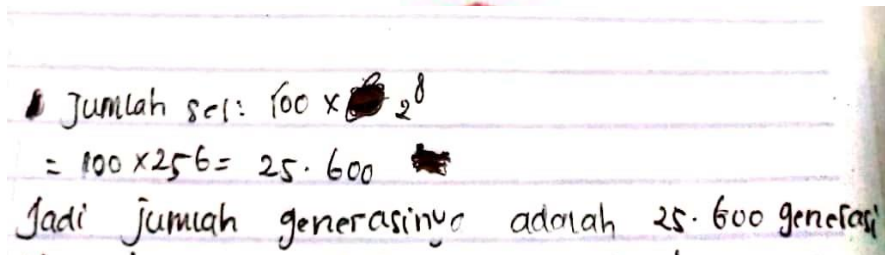 Jumlah sel: 100 x 2⁸
= 100 x 256 = 25.600
Jadi jumlah generasinya adalah 25.600 generasi